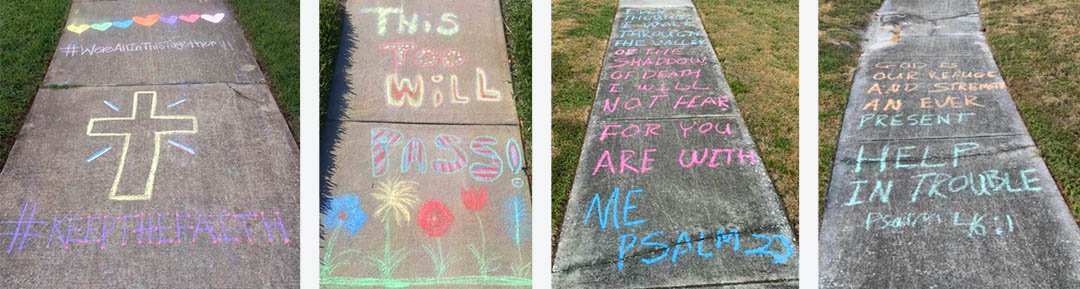 #WereAllInThisTogether!!
#KEEPTHEFAITH
THIS
TOO
WILL
PASS!
THOUGH I WALK
THROUGH
THE VALLEY
OF THE
SHADDOW
OF DEATH
I WILL
NOT FEAR
FOR YOU
ARE WITH
ME
PSALM 23
GOD IS
OUR REFUGE
AND STRENGTH
AN EVER
PRESENT
HELP
IN TROUBLE
Psalm 46:1